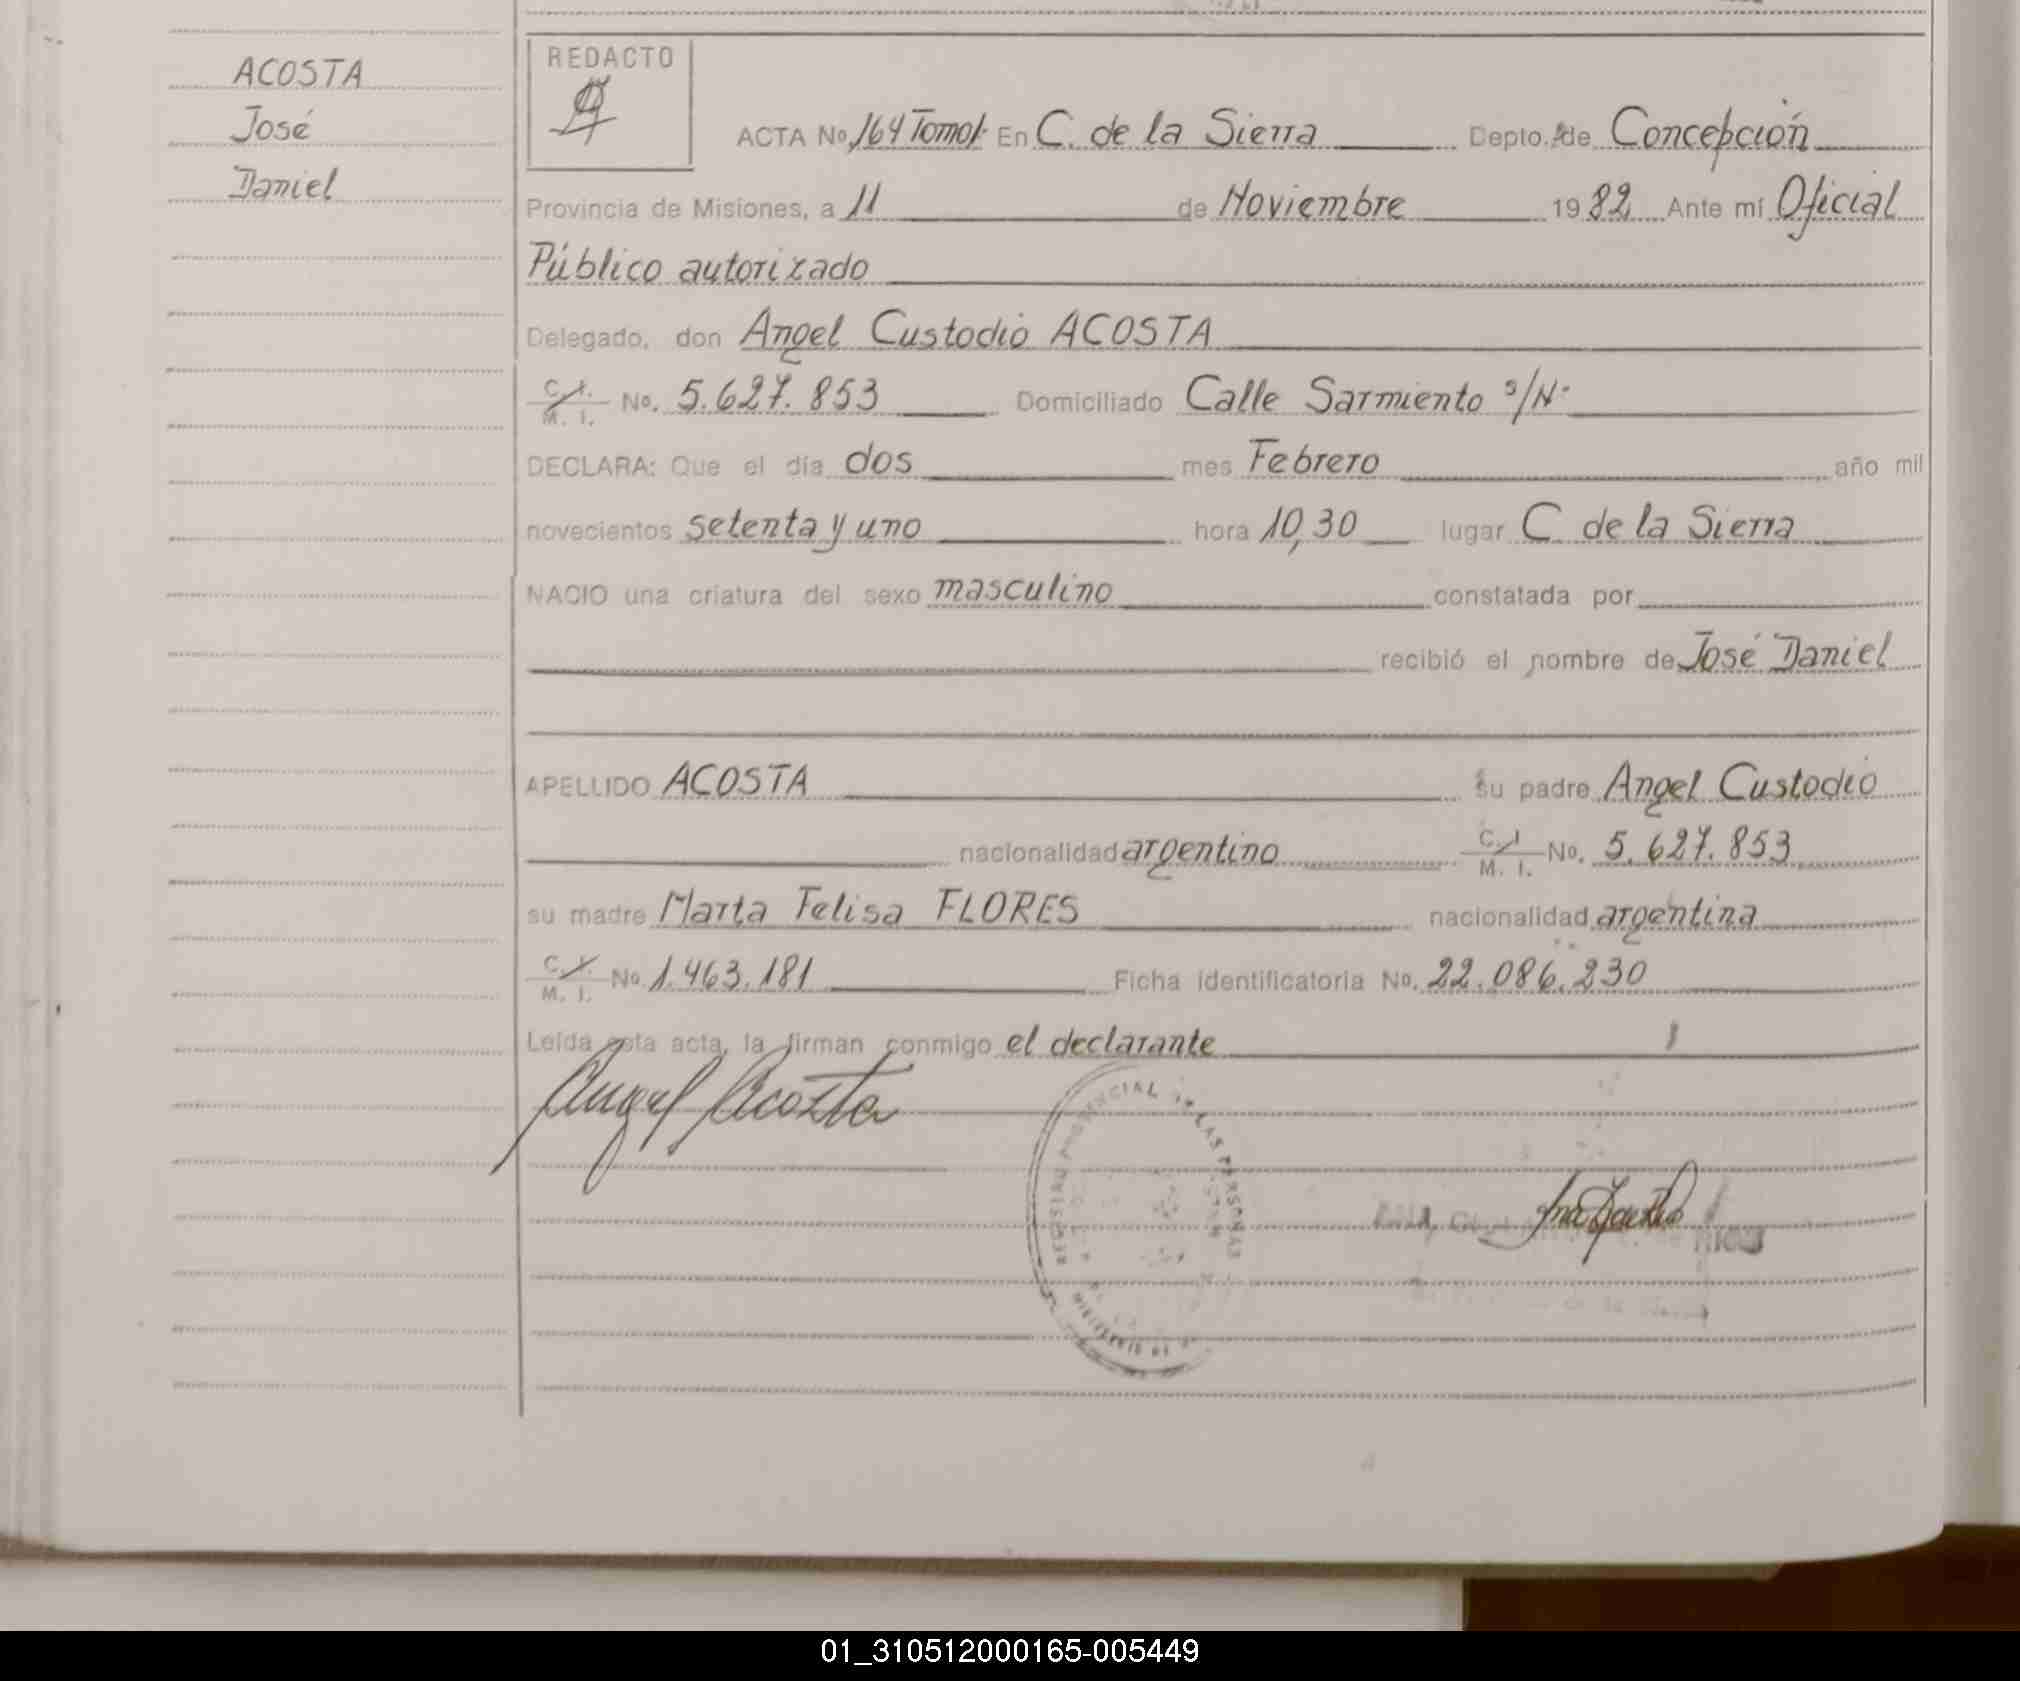 ACOSTA
José
Daniel
REDACTO
ACTA No 164 Tomo I. En C. de la Sierra Depto. de Concepción
Provincia de Misiones, a 11 de Noviembre 1982 Ante mí Oficial
Público autorizado
Delegado, don Angel Custodio ACOSTA
C. I. M. I. No. 5.627.853 Domiciliado Calle Sarmiento s/Nº
DECLARA: Que el día dos mes Febrero año mil
novecientos setenta y uno hora 10,30 lugar C. de la Sierra
NACIO una criatura del sexo masculino constatada por
recibió el nombre de José Daniel
APELLIDO ACOSTA su padre Angel Custodio
nacionalidad argentino C. I. M. I. No. 5.627.853
su madre Marta Felisa FLORES nacionalidad argentina
C. I. M. I. No 1.463.181 Ficha identificatoria No. 22.086.230
Leída esta acta, la firman conmigo el declarante
Angel Acosta
REGISTRO PROVINCIAL DE LAS PERSONAS
01_310512000165-005449